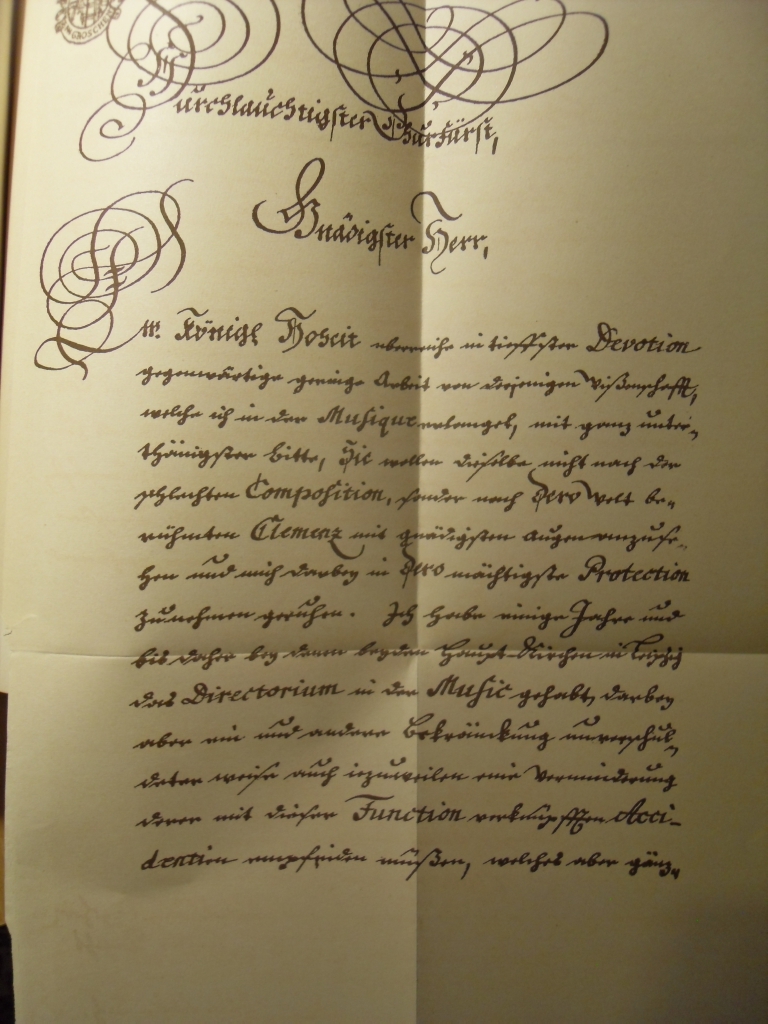 Durchlauchtigster Churfürst,
Gnädigster Herr,
Ew. Königl Hoheit überreiche in tieffster Devotion
gegenwärtige geringe Arbeit von derjenigen Wißenschafft,
welche ich in der Musique erlanget, mit ganz unter-
thänigster bitte, Sie wollen dieselbe nicht nach der
schlechten Composition, sonder nach Dero Welt be-
rühmten Clemenz mit gnädigsten Augen anzuse-
hen und mich darbey in Dero mächtigste Protection
zu nehmen geruhen. Ich habe einige Jahre und
bis daher bey denen beyden Haupt-Kirchen in Leipzig
das Directorium in der Music gehabt, darbey
aber ein und andere Bekränckung unverschul-
deter weise auch iezuweilen eine Verminderung
derer mit dieser Function verknüpfften Acci-
dentien empfinden müßen, welches aber gänz-